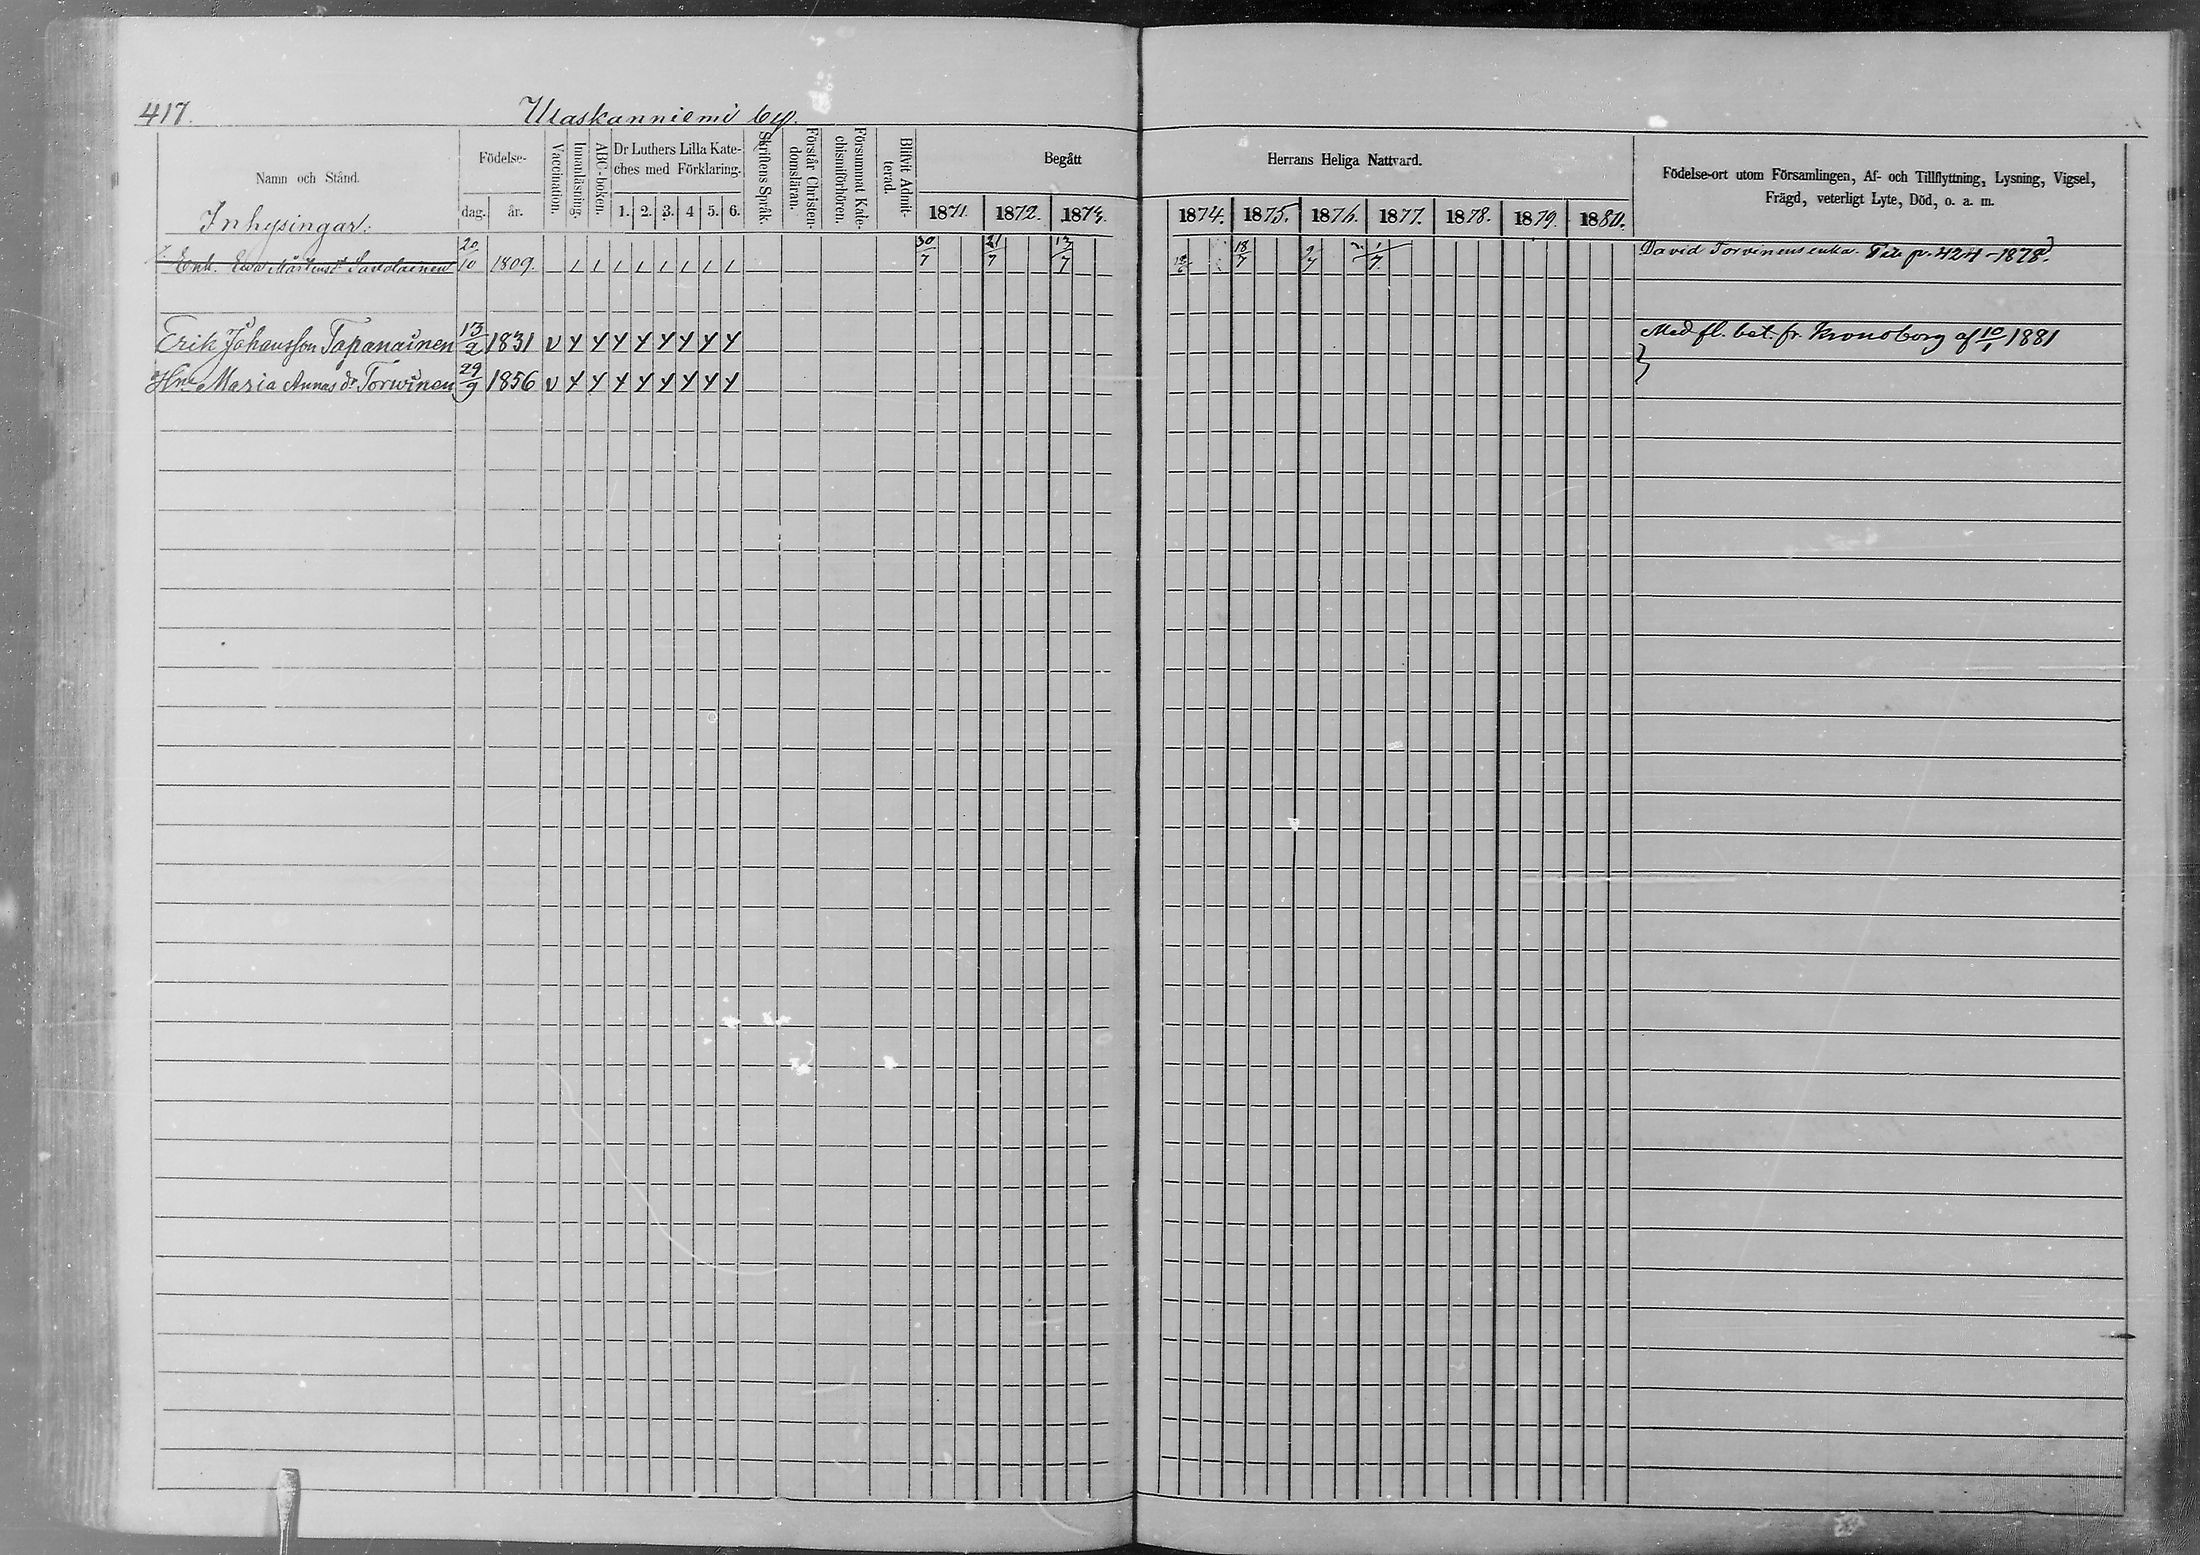 417. Utaskanniemi by.
Namn och Stånd. Födelse- dag. år. Vaccination. Innanläsning. ABC-boken. Dr Luthers Lilla Kate-ches med Förklaring. 1. 2. 3. 4 5. 6. Skriftens Språk. Förstår Christen-domsläran. Försummat Kate-chismiförhören. Blifvit Admit-terad. Begått Herrans Heliga Nattvard. Födelse-ort utom Församlingen, Af- och Tillflyttning, Lysning, Vigsel, Frägd, veterligt Lyte, Död, o. a. m.
1871. 1872. 1873. 1874. 1875. 1876. 1877. 1878. 1879. 1880.
Inhysingar:
Enk. Eva Mårtensdr Savolainen 20/10 1809. 30/7 21/7 13/7 18/7 9/7 1/7 David Torvinens enka. p. 424 - 1878.
Erik Johansson Tapanainen 13/2 1831 v Med fl. bet. fr. Kronoborg af 10/1 1881
Hn. Maria Annas dr Torwinen 29/9 1856 v